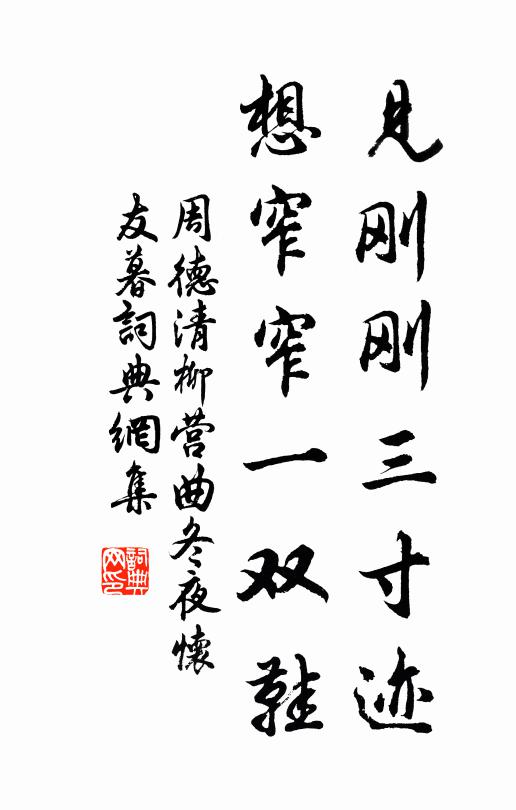 见刚刚三寸迹
想窄窄一双鞋
周德清柳营曲冬夜懷
友暮詞典網集
詞典
网印